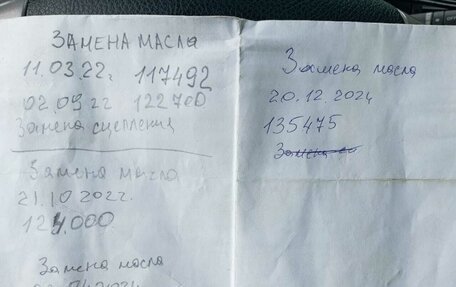 ЗАМЕНА МАСЛА
11.03.22г. 117492
02 09 22 122700
Замена сцепления
Замена масла
21.10 2022г.
124.000
Замена масла
Замена масла
20.12.2024
135475
Замена